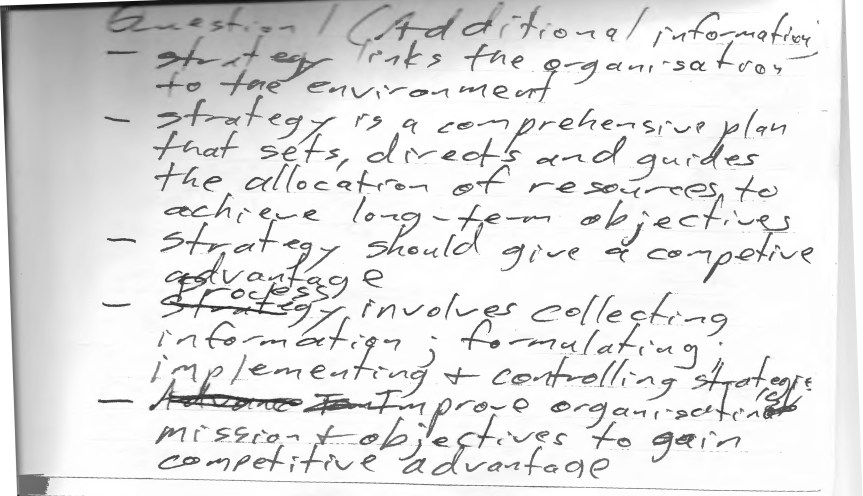 Question 1 (Additional information)
- strategy links the organisation
to the environment
- strategy is a comprehensive plan
that sets, directs and guides
the allocation of resources, to
achieve long-term objectives
- strategy should give a competive
advantage
process
- Strategy involves collecting
information; formulating;
implementing + controlling strategies
- Advance Improve organisation
mission + objectives to gain
competitive advantage